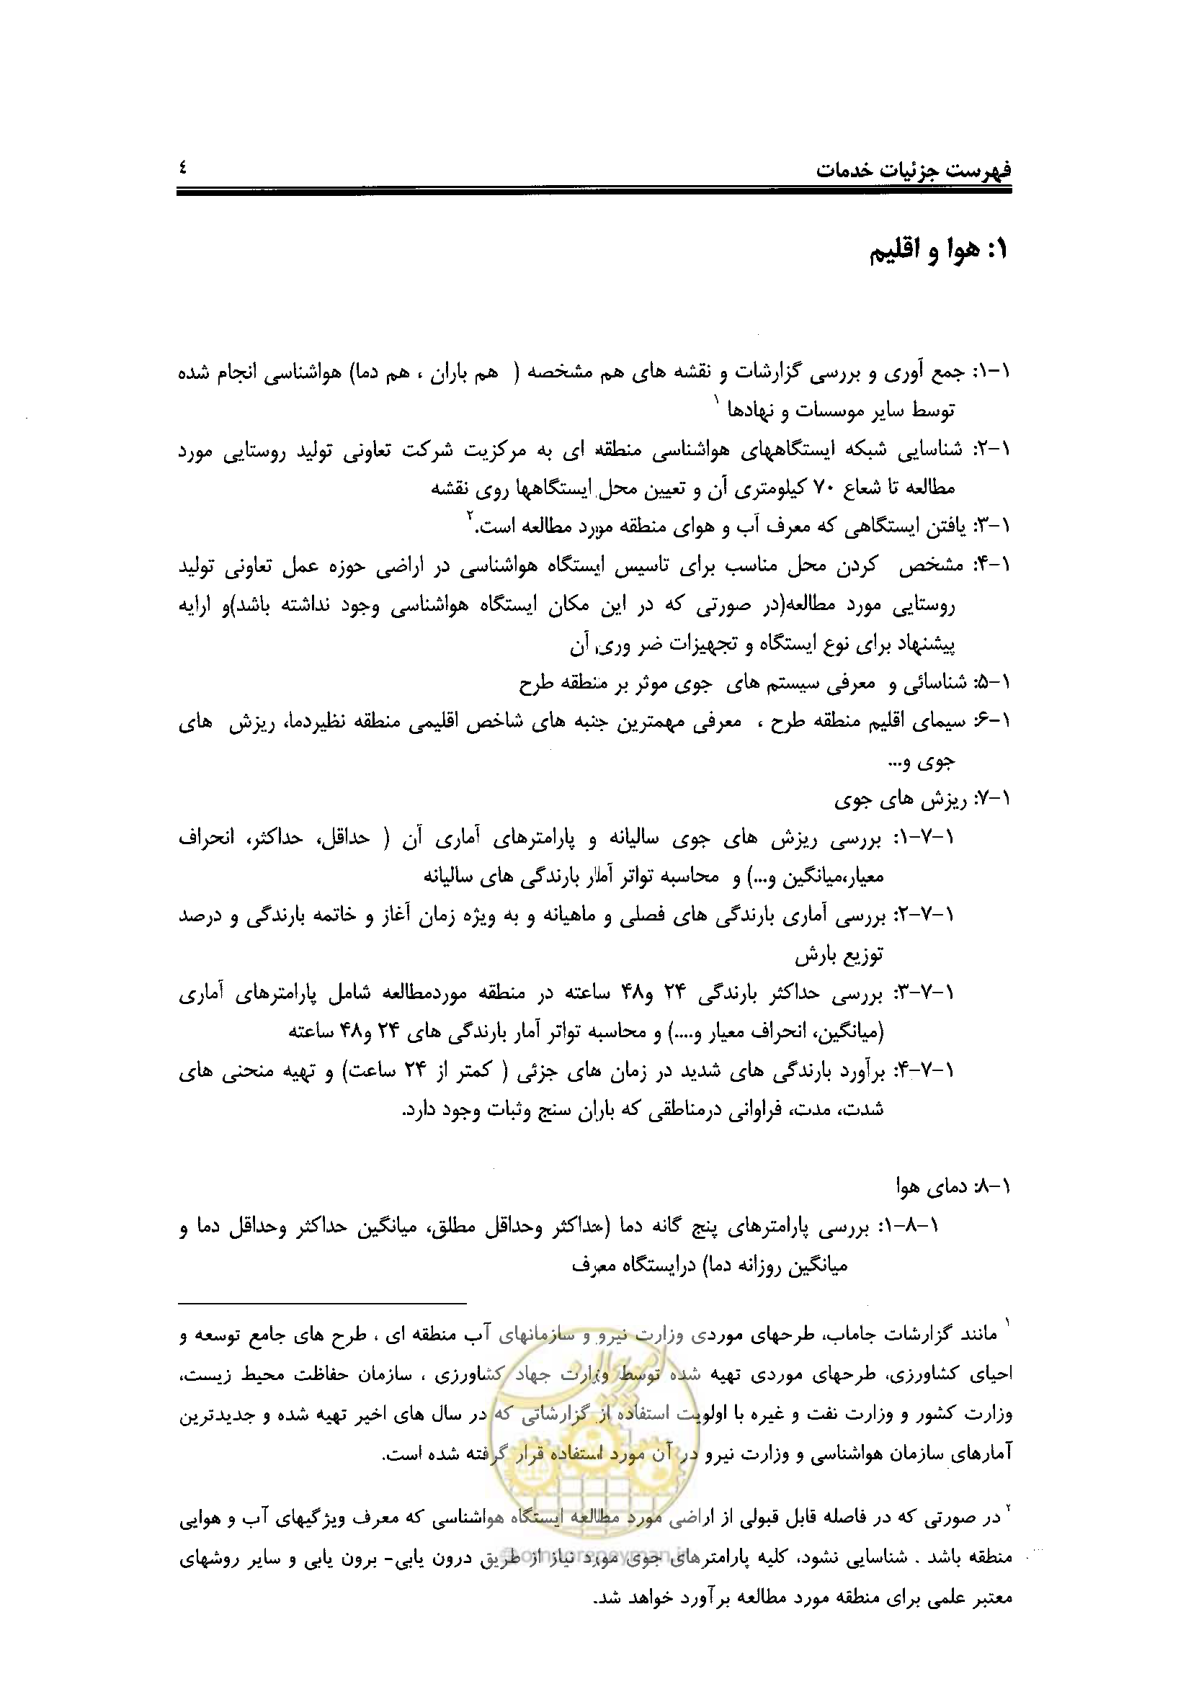 فهرست جزئیات خدمات ٤
۱: هوا و اقلیم
۱-۱: جمع آوری و بررسی گزارشات و نقشه های هم مشخصه ( هم باران ، هم دما) هواشناسی انجام شده
توسط سایر موسسات و نهادها ۱
۱-۲: شناسایی شبکه ایستگاههای هواشناسی منطقه ای به مرکزیت شرکت تعاونی تولید روستایی مورد
مطالعه تا شعاع ۷۰ کیلومتری آن و تعیین محل ایستگاهها روی نقشه
۱-۳: یافتن ایستگاهی که معرف آب و هوای منطقه مورد مطالعه است.۲
۱-۴: مشخص کردن محل مناسب برای تاسیس ایستگاه هواشناسی در اراضی حوزه عمل تعاونی تولید
روستایی مورد مطالعه(در صورتی که در این مکان ایستگاه هواشناسی وجود نداشته باشد)و ارایه
پیشنهاد برای نوع ایستگاه و تجهیزات ضر وری آن
۱-۵: شناسائی و معرفی سیستم های جوی موثر بر منطقه طرح
۱-۶: سیمای اقلیم منطقه طرح ، معرفی مهمترین جنبه های شاخص اقلیمی منطقه نظیردما، ریزش های
جوی و...
۱-۷: ریزش های جوی
۱-۷-۱: بررسی ریزش های جوی سالیانه و پارامترهای آماری آن ( حداقل، حداکثر، انحراف
معیار،میانگین و...) و محاسبه تواتر آمار بارندگی های سالیانه
۱-۷-۲: بررسی آماری بارندگی های فصلی و ماهیانه و به ویژه زمان آغاز و خاتمه بارندگی و درصد
توزیع بارش
۱-۷-۳: بررسی حداکثر بارندگی ۲۴ و۴۸ ساعته در منطقه موردمطالعه شامل پارامترهای آماری
(میانگین، انحراف معیار و....) و محاسبه تواتر آمار بارندگی های ۲۴ و۴۸ ساعته
۱-۷-۴: برآورد بارندگی های شدید در زمان های جزئی ( کمتر از ۲۴ ساعت) و تهیه منحنی های
شدت، مدت، فراوانی درمناطقی که باران سنج وثبات وجود دارد.
۱-۸: دمای هوا
۱-۸-۱: بررسی پارامترهای پنج گانه دما (حداکثر وحداقل مطلق، میانگین حداکثر وحداقل دما و
میانگین روزانه دما) درایستگاه معرف
۱ مانند گزارشات جاماب، طرحهای موردی وزارت نیرو و سازمانهای آب منطقه ای ، طرح های جامع توسعه و
احیای کشاورزی، طرحهای موردی تهیه شده توسط وزارت جهاد کشاورزی ، سازمان حفاظت محیط زیست،
وزارت کشور و وزارت نفت و غیره با اولویت استفاده از گزارشاتی که در سال های اخیر تهیه شده و جدیدترین
آمارهای سازمان هواشناسی و وزارت نیرو در آن مورد استفاده قرار گرفته شده است.
۲ در صورتی که در فاصله قابل قبولی از اراضی مورد مطالعه ایستگاه هواشناسی که معرف ویژگیهای آب و هوایی
منطقه باشد . شناسایی نشود، کلیه پارامترهای جوی مورد نیاز از طریق درون یابی- برون یابی و سایر روشهای
معتبر علمی برای منطقه مورد مطالعه برآورد خواهد شد.